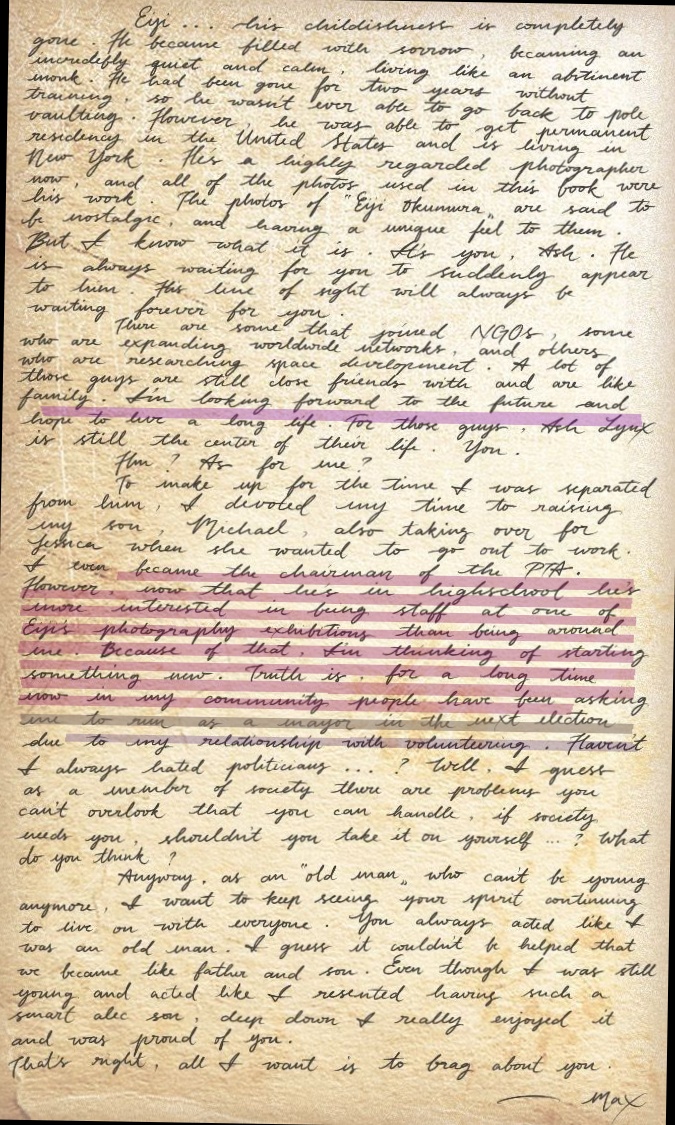 Eiji ... his childishness is completely
gone. He became filled with sorrow, becoming an
incredebly quiet and calm, living like an abstinent
monk. He had been gone for two years without
training, so he wasn't ever able to go back to pole
vaulting. However, he was able to get permanent
residency in the United States and is living in
New York. He's a highly regarded photographer
now, and all of the photos used in this book were
his work. The photos of "Eiji Okumura" are said to
be nostalgic, and having a unique feel to them.
But I know what it is. It's you, Ash. He
is always waiting for you to suddenly appear
to him. His line of sight will always be
waiting forever for you.
There are some that joined NGOs, some
who are expanding worldwide networks, and others
who are researching space development. A lot of
those guys are still close friends with and are like
family. I'm looking forward to the future and
hope to live a long life. For those guys, Ash Lynx
is still the center of their life. You.
Hm? As for me?
To make up for the time I was separated
from him, I devoted my time to raising
my son, Michael, also taking over for
Jessica when she wanted to go out to work.
I even became the chairman of the PTA.
However, now that he's in highschool he's
more interested in being staff at one of
Eiji's photography exhibitions than being around
me. Because of that, I'm thinking of starting
something new. Truth is, for a long time
now in my community people have been asking
me to run as a mayor in the next election
due to my relationship with volunteering. Haven't
I always hated politicians ... ? Well, I guess
as a member of society there are problems you
can't overlook that you can handle, if society
needs you, shouldn't you take it on yourself ... ? What
do you think?
Anyway, as an "old man" who can't be young
anymore, I want to keep seeing your spirit continuing
to live on with everyone. You always acted like I
was an old man. I guess it couldn't be helped that
we became like father and son. Even though I was still
young and acted like I resented having such a
smart alec son, deep down I really enjoyed it
and was proud of you.
That's right, all I want is to brag about you.
— Max